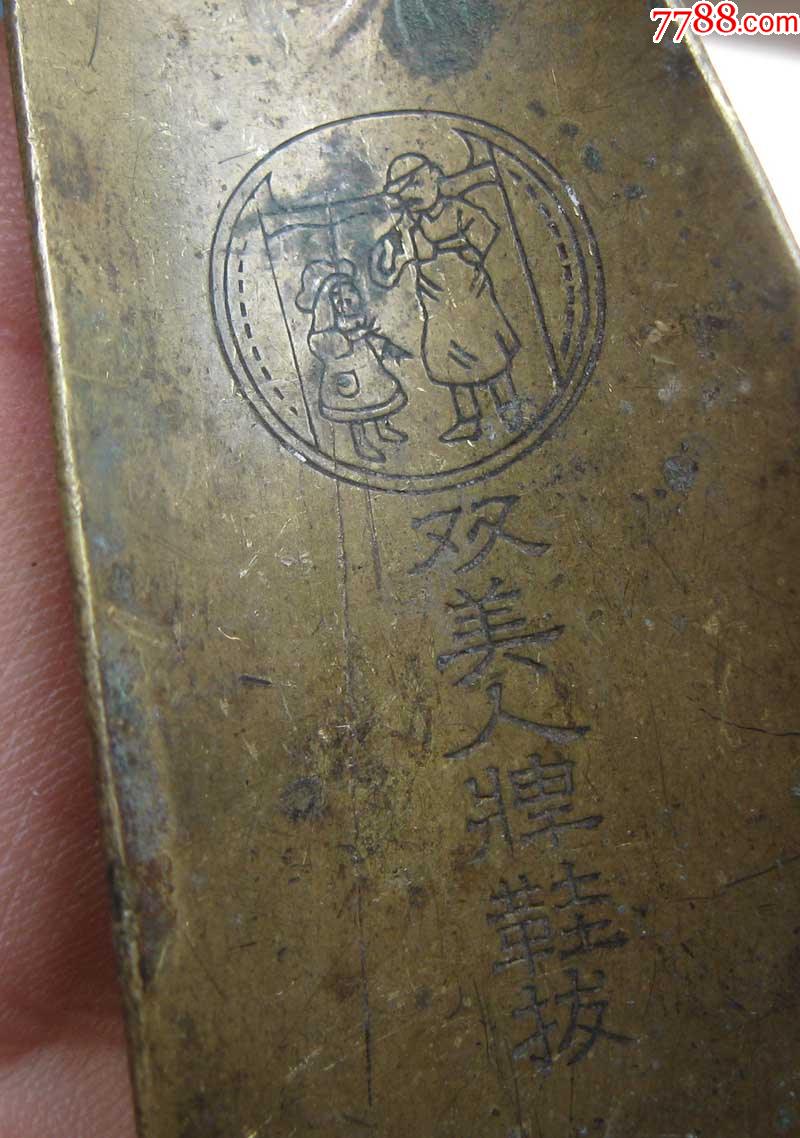 7788.com
双美人牌鞋拔